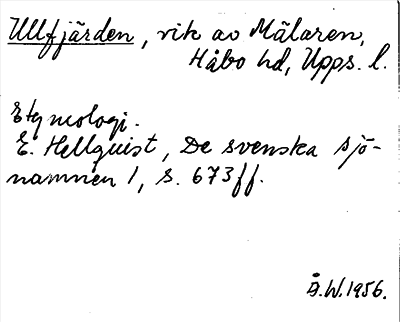 Ullfjärden, vik av Mälaren,
Håbo hd, Upps. l.
Etymologi.
E. Hellquist, De svenska sjö-
namnen 1, s. 673 ff.
Å.W. 1956.